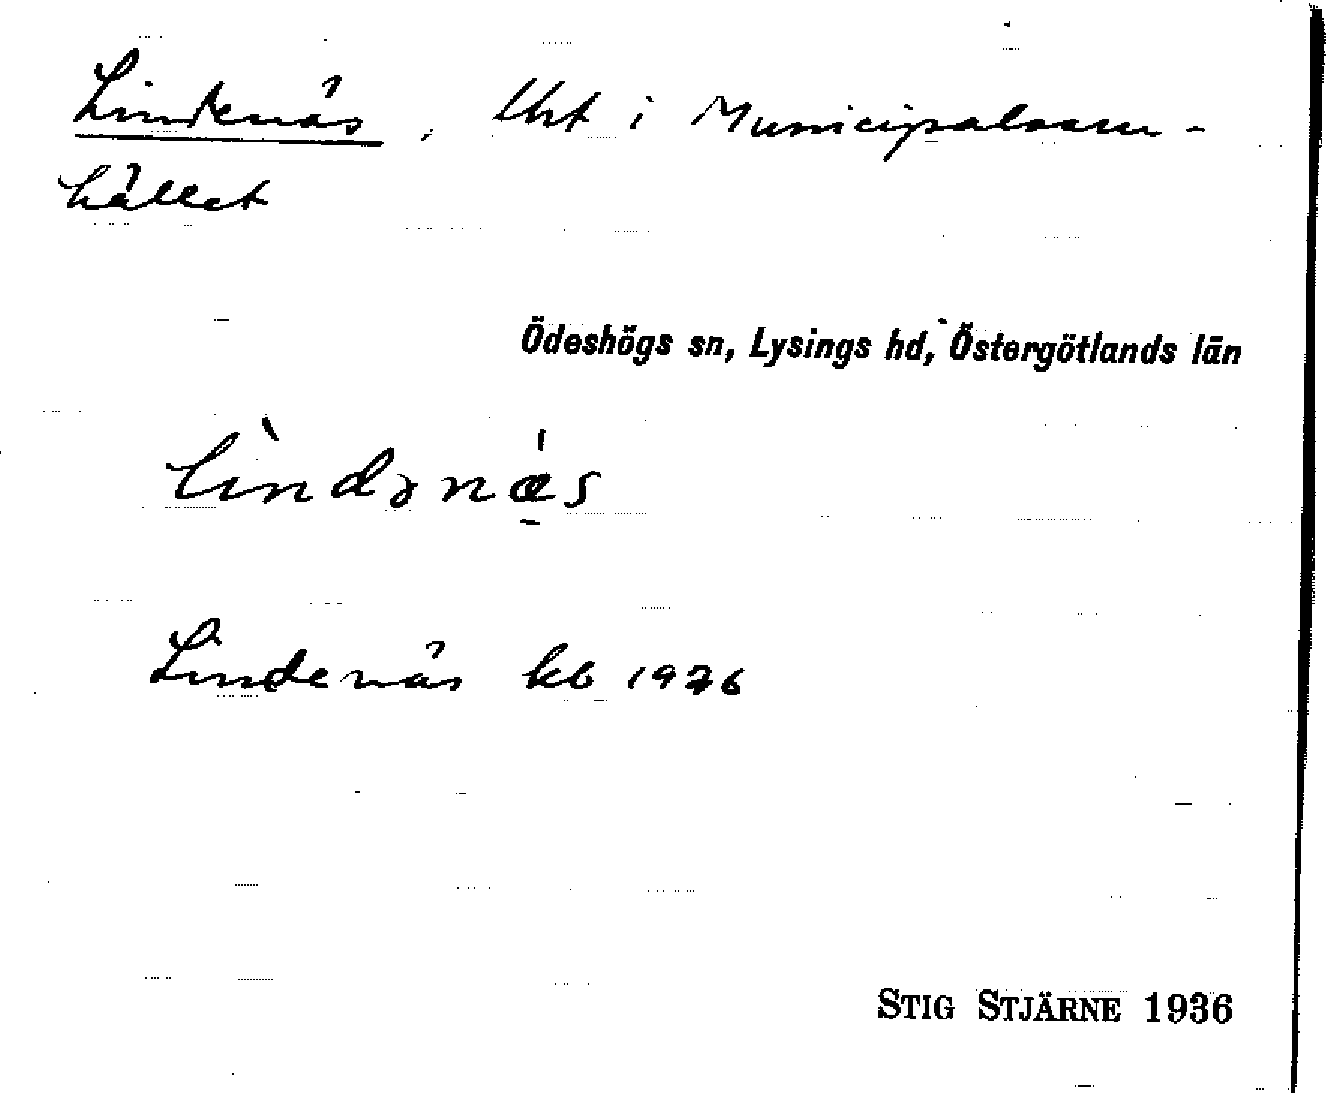 Lindenäs, lht i Municipalsam-
hället
Ödeshögs sn, Lysings hd, Östergötlands län
lìndənǽs
Lindenäs kb 1926
STIG STJÄRNE 1936